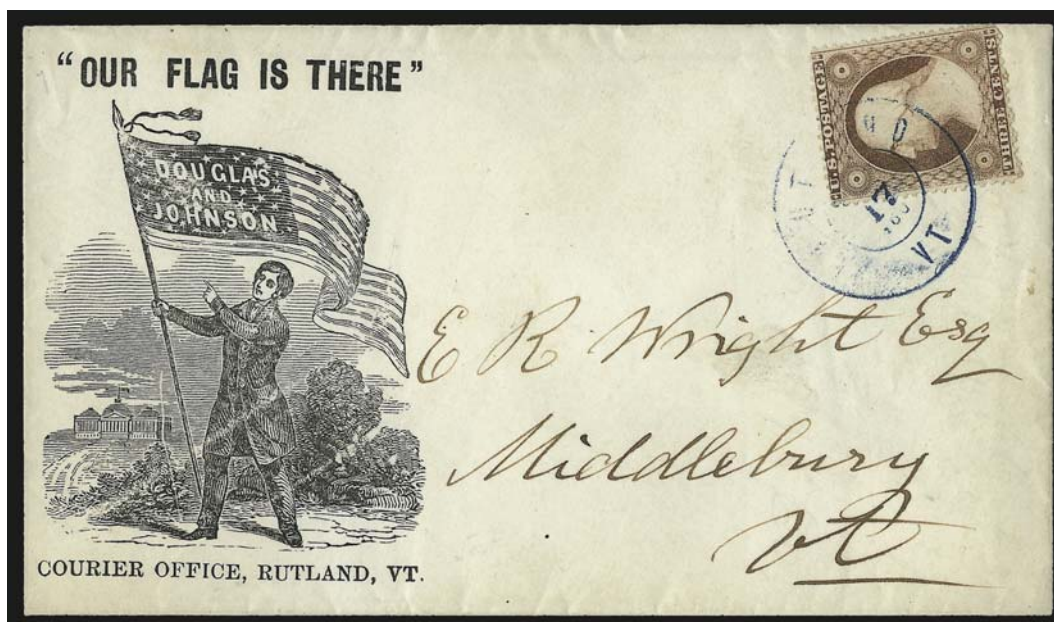 “OUR FLAG IS THERE”
DOUGLAS
AND
JOHNSON.
COURIER OFFICE, RUTLAND, VT.
U.S. POSTAGE.
THREE CENTS.
17
VT
E R Wright Esq
Middlebury
Vt